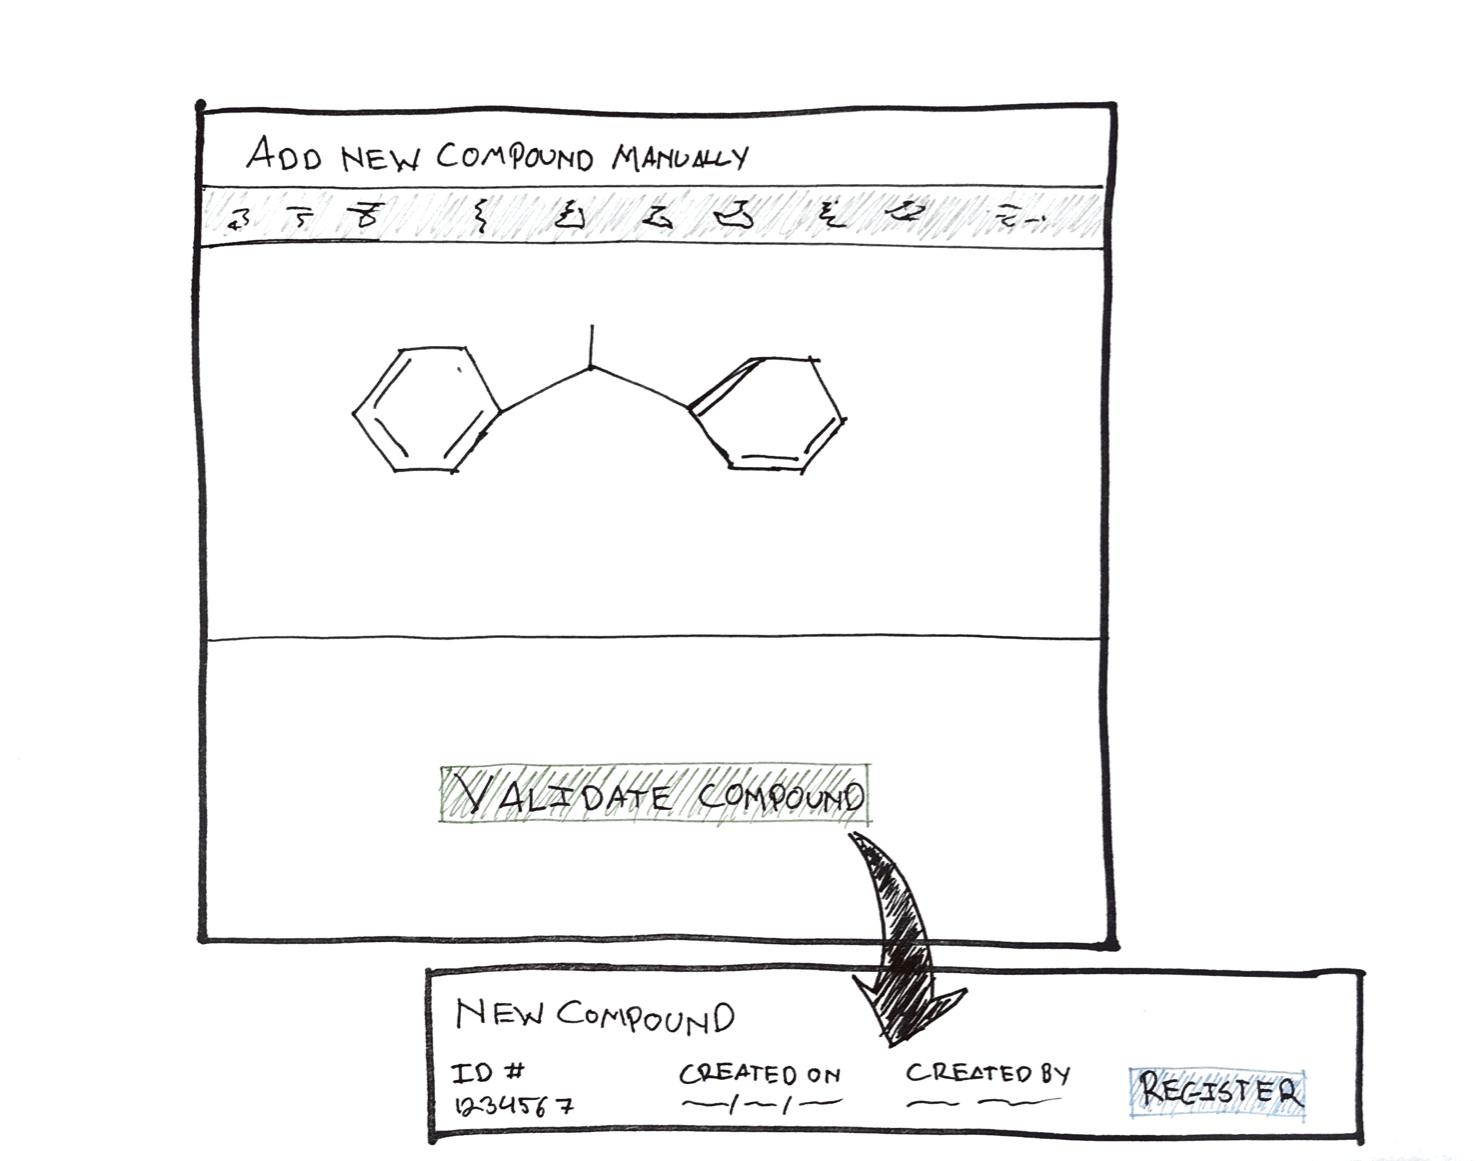 ADD NEW COMPOUND MANUALLY
VALIDATE COMPOUND
NEW COMPOUND
ID # CREATED ON CREATED BY REGISTER
1234567